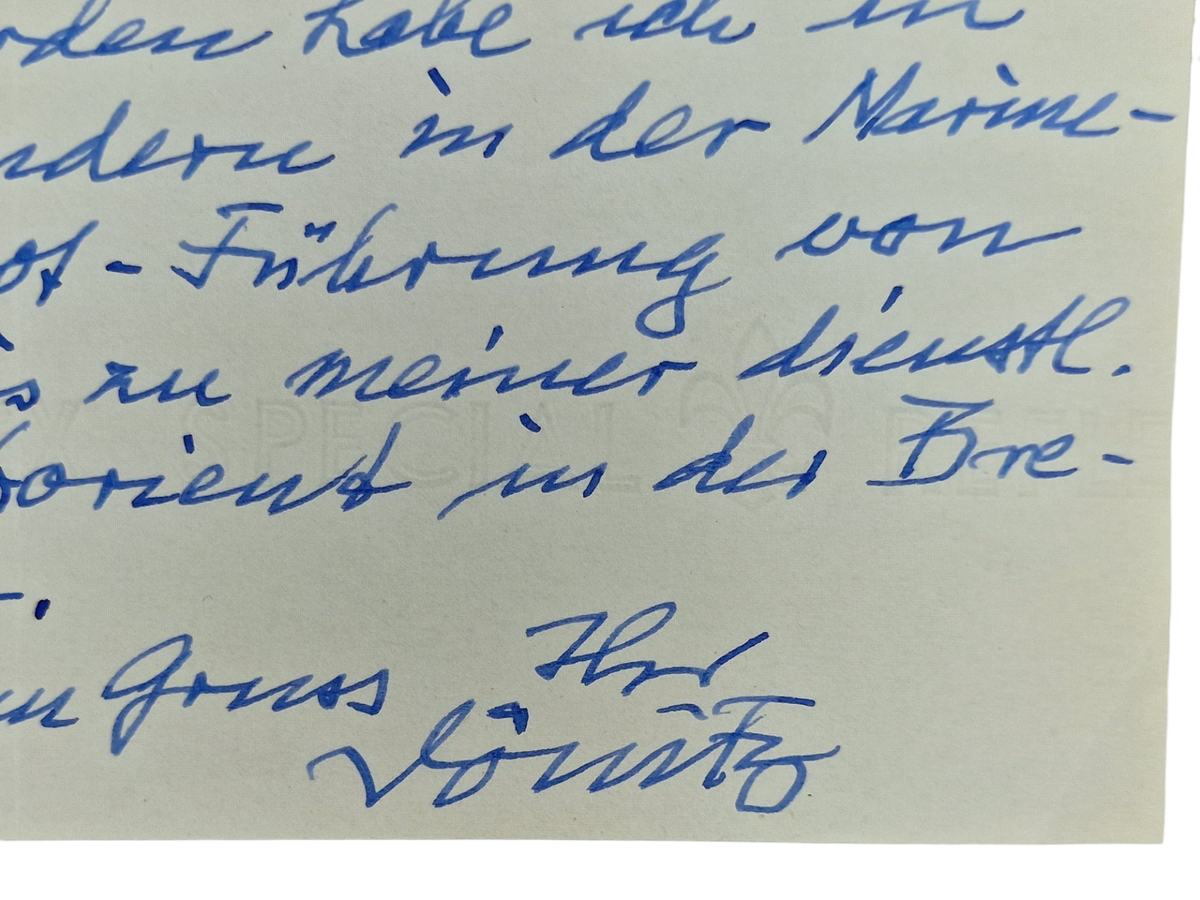 rden habe ich in
ndern in der Marine-
ot-Führung von
is zu meiner dienstl.
Lorient in der Bre-
-.
en Gruss Ihr
Dönitz
SPECIAL